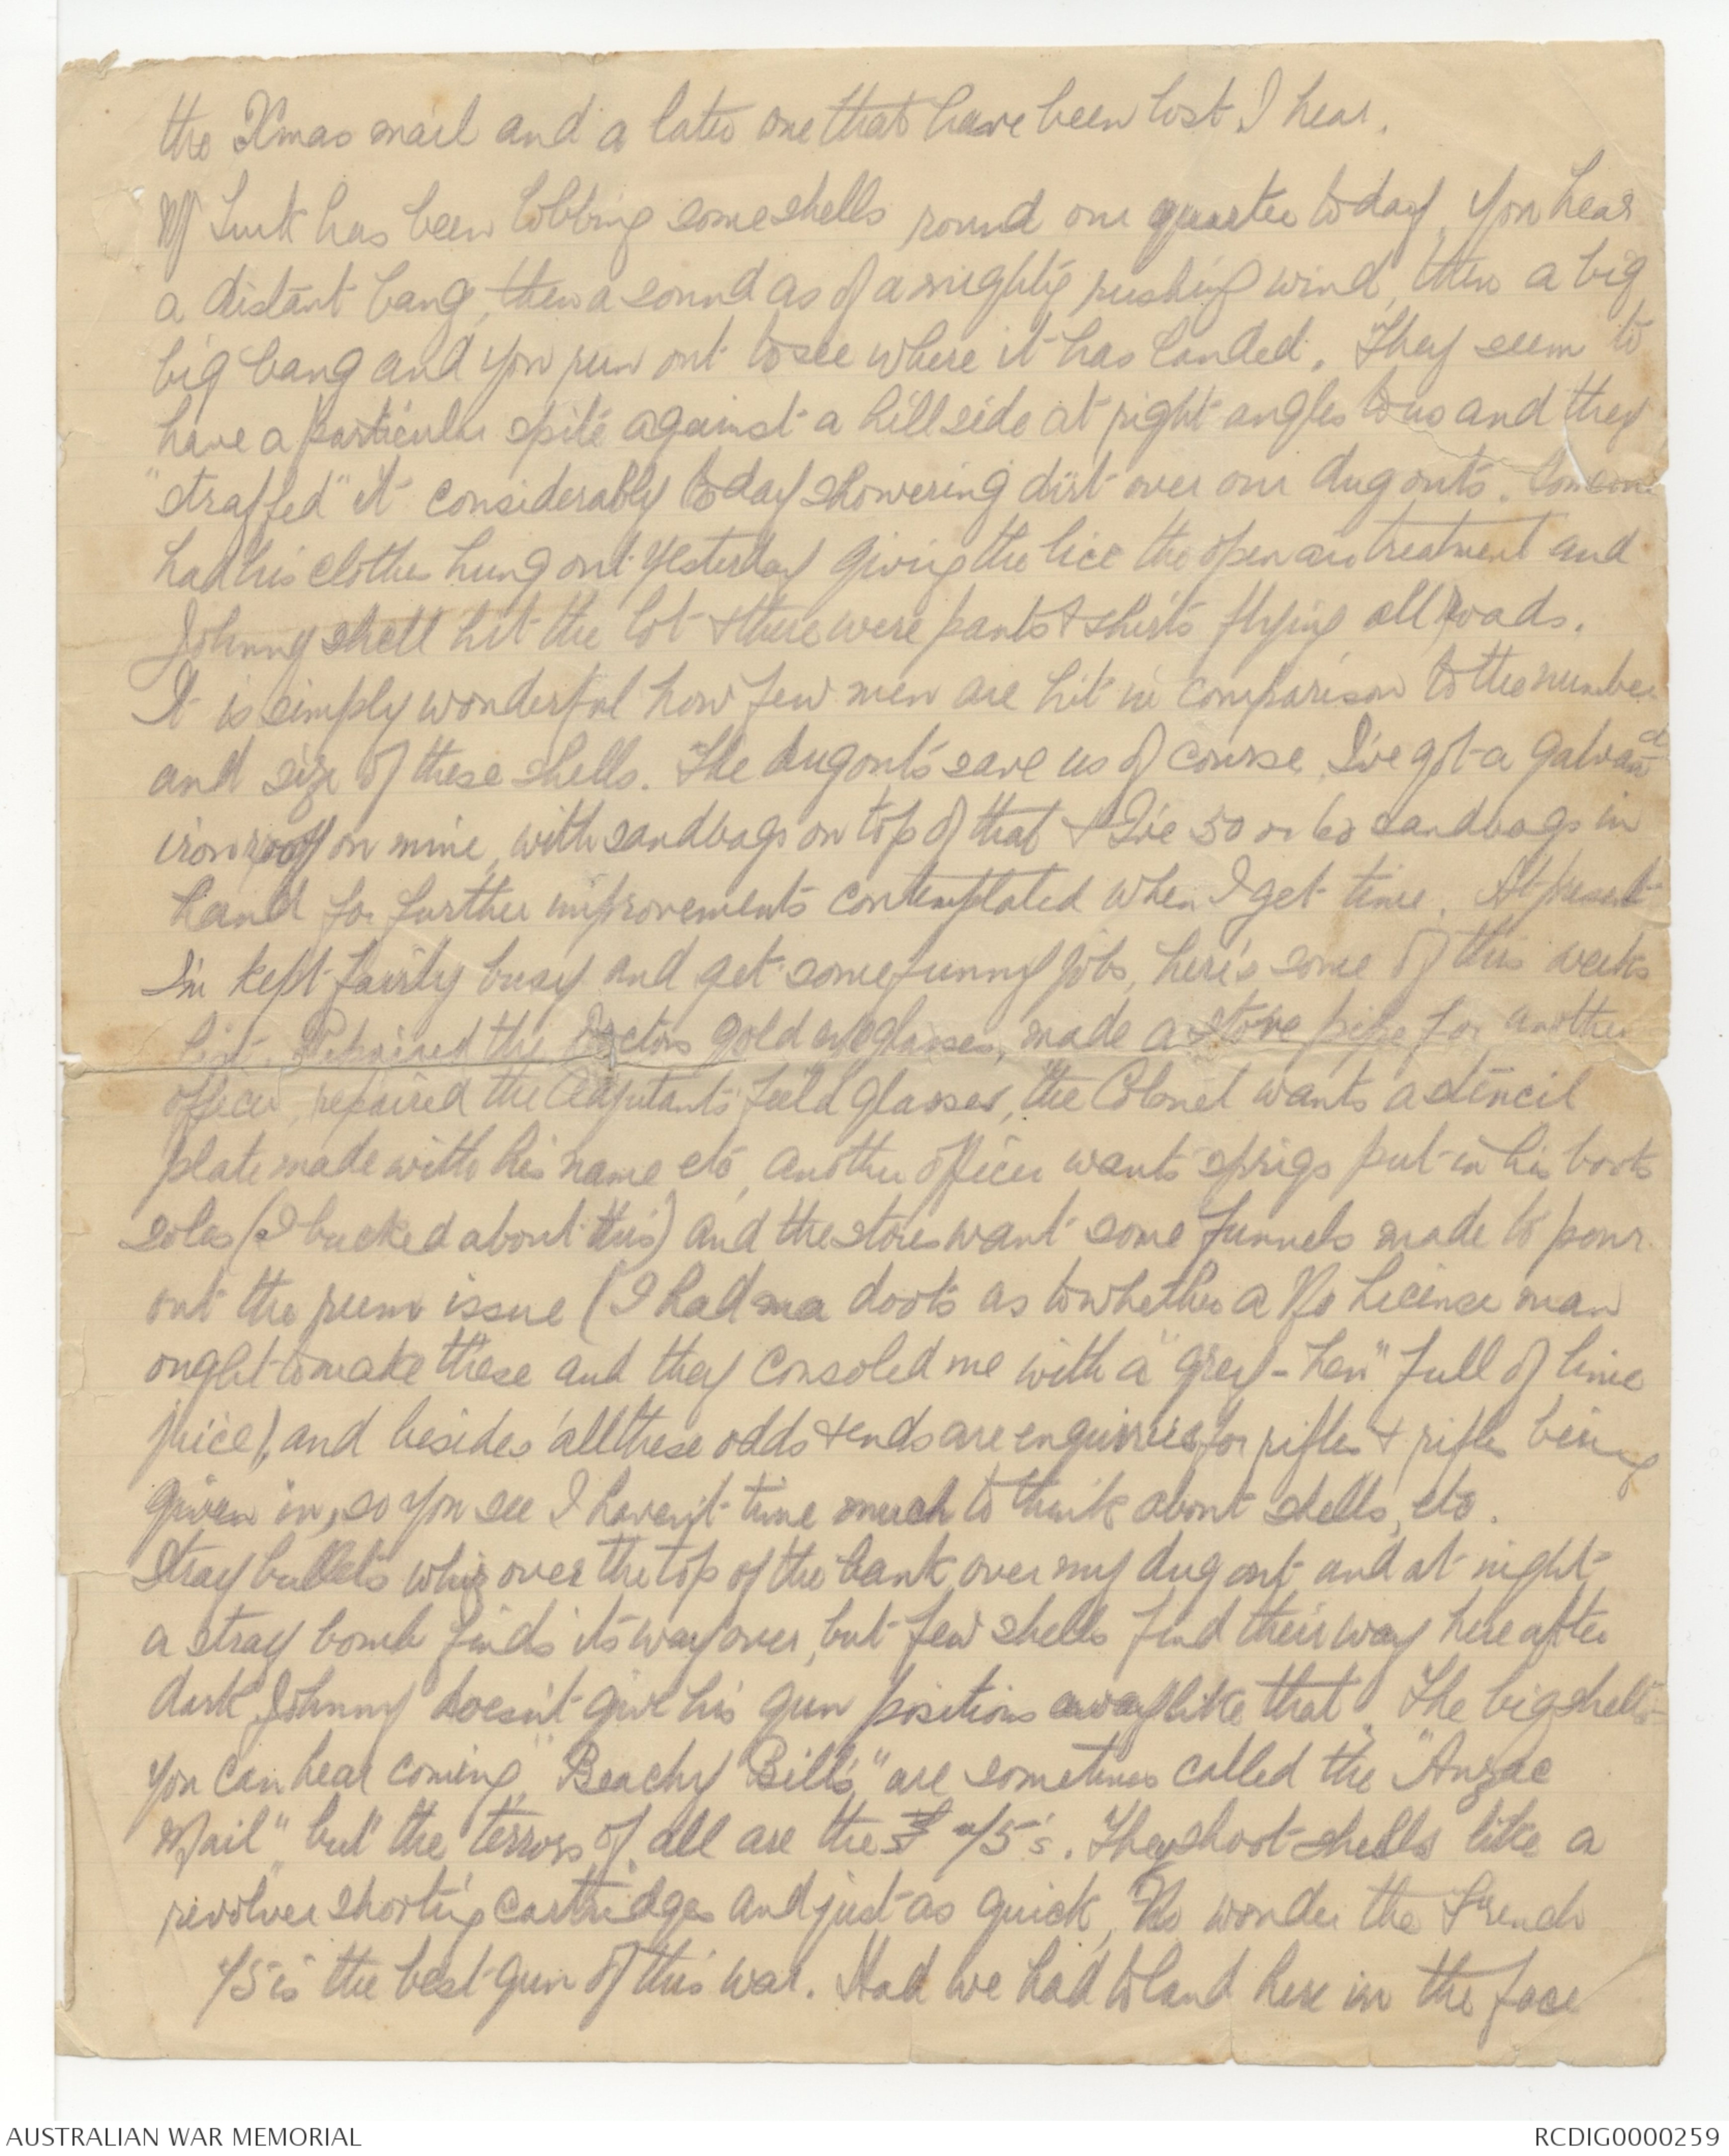 the Xmas mail and a later one that have been lost I hear.
Mr Turk has been lobbing some shells round our quarter today. You hear
a distant bang, then a sound as of a mighty rushing wind, then a big,
big bang and you run out to see where it has landed. They seem to
have a particular spite against a hillside at right angles to us and they
"straffed" it considerably today showering dirt over our dugouts. Someone
had his clothes hung out yesterday giving the lice the open air treatment and
Johnny shell hit the lot & there were pants & shirts flying all roads.
It is simply wonderful how few men are hit in comparison to the number
and size of these shells. The dugouts save us of course, I've got a galvan'd
iron roof on mine, with sandbags on top of that & I've 50 or 60 sandbags in
hand for further improvements contemplated when I get time. At present
I'm kept fairly busy and get some funny jobs, here's some of this weeks
list. Repaired the Doctors gold eyeglasses, made a stove pipe for another
officer, repaired the Adjutants field glasses, the Colonel wants a stencil
plate made with his name etc, another officer wants sprigs put in his boots
soles (I bucked about this) and the stores want some funnels made to pour
out the rum issue (I had ma doots as to whether a No License man
ought to make these and they consoled me with a "grey-hen" full of lime
juice), and besides all these odds & ends are enquiries for rifles & rifles being
given in, so you see I haven't time much to think about shells, etc.
Stray bullets whiz over the top of the bank over my dugout and at night
a stray bomb finds its way over, but few shells find their way here after
dark, Johnny doesn't give his gun positions away like that. The big shells
you can hear coming, "Beachy Bills," are sometimes called the "Anzac
Mail" but the terrors of all are the 75's. They shoot shells like a
revolver shooting cartridges and just as quick, No wonder the French
75 is the best gun of this war. Had we had to land here in the face
AUSTRALIAN WAR MEMORIAL
RCDIG0000259